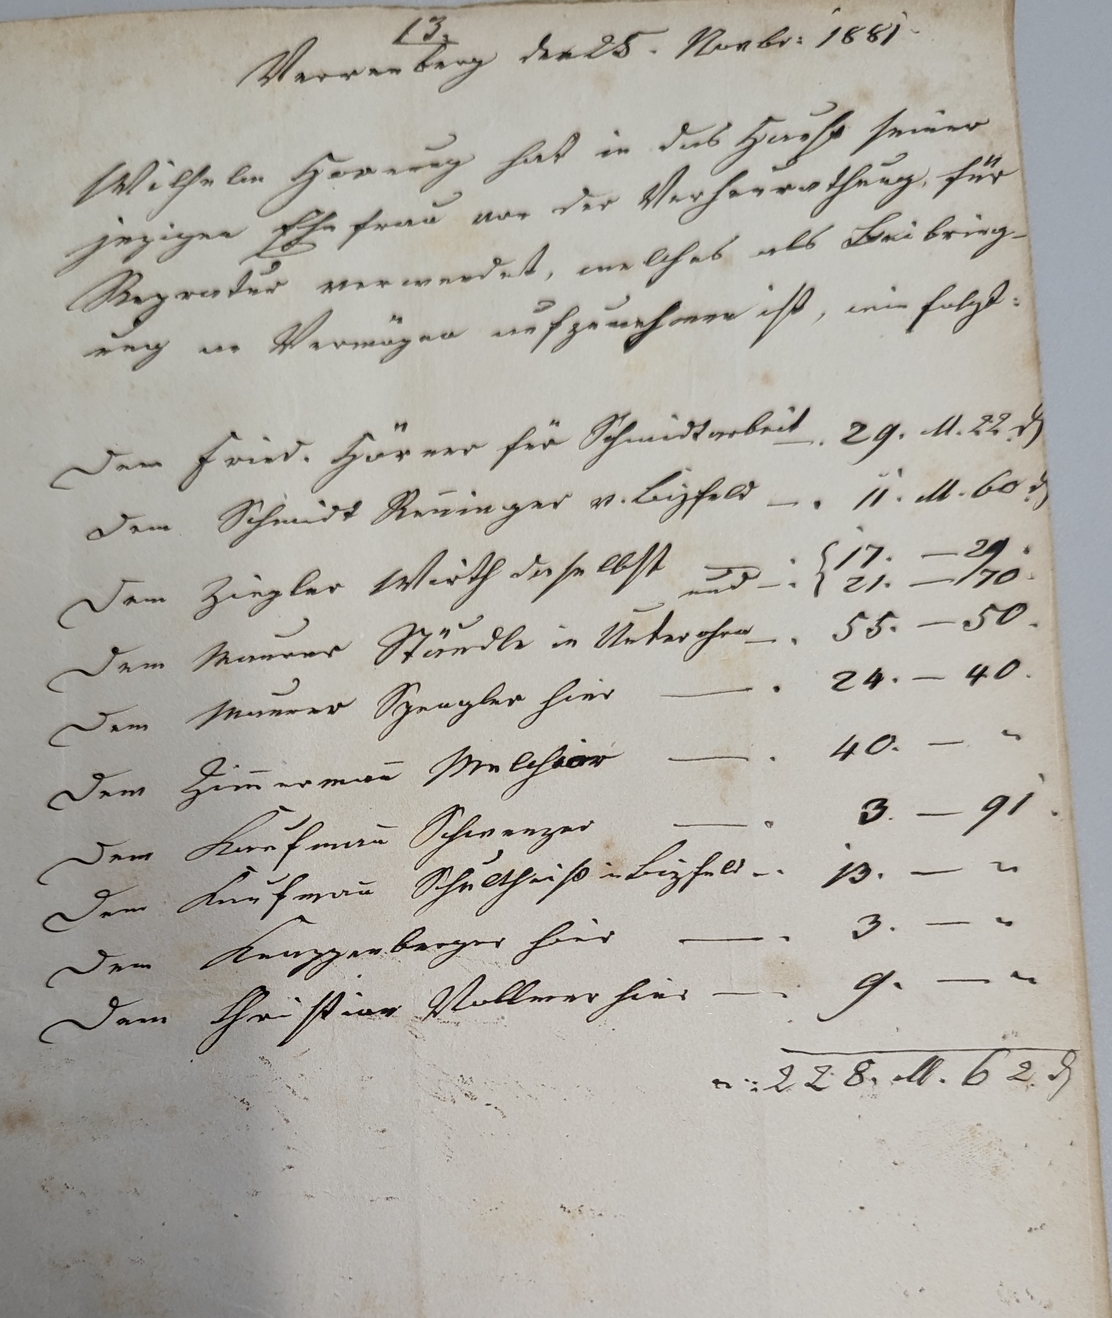 13.
Verrenberg den 25. Novbr: 1881
Wilhelm Hornung hat in das Hauß seiner
jezigen Ehefrau vor der Verheurathung, für
Repratur verwendet, welches als Beibring-
ung an Vermögen aufzunehmen ist, wie folgt:
Dem Fried. Hörner für Schmidtarbeit —. 29. M. 22 ₰
Dem Schmidt Reninger v. Bizfeld —. 11. M. 60 ₰
Dem Ziegler Wirth daselbst —. 17. — 29.
und —. 21. — 70.
Dem Maurer Ständle in Unterohrn —. 55. — 50.
Dem Maurer Spengler hier —. 24. — 40.
Dem Zimmermann Melchior —. 40. — "
Dem Kaufmann Schwenzer —. 3. — 91.
Dem Kaufmann Schultheiß in Bizfeld —. 13. — "
Dem Knappenberger hier —. 3. — "
Dem Christian Vollmer hier —. 9. — "
228. M. 62 ₰